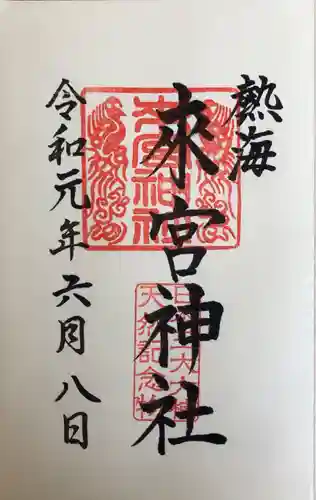 熱海
來宮神社
令和元年六月八日
來宮神社
天然記念物